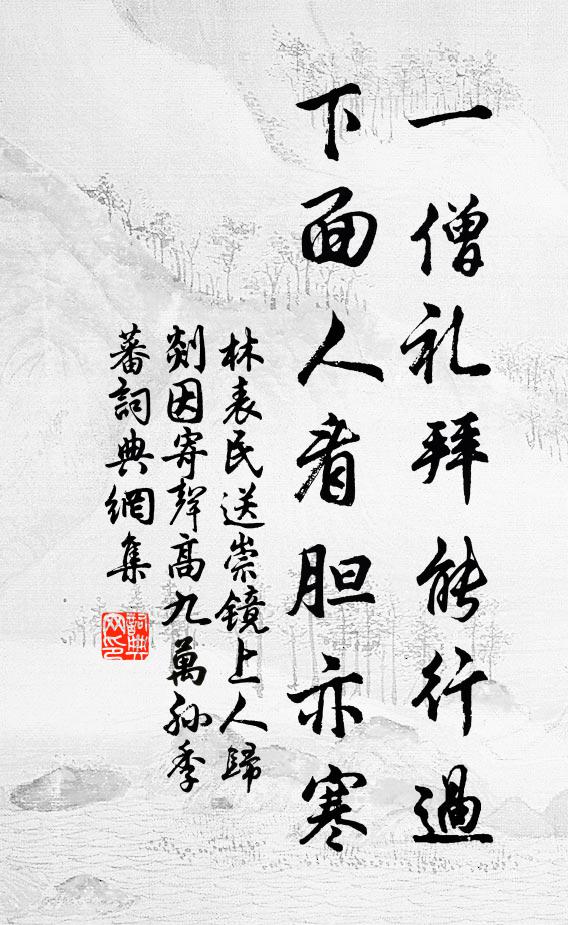 一僧礼拜能行過
下面人看胆亦寒
林表民送崇镜上人歸
剡因寄聲高九萬孙季
蕃詞典網集
詞典
网印